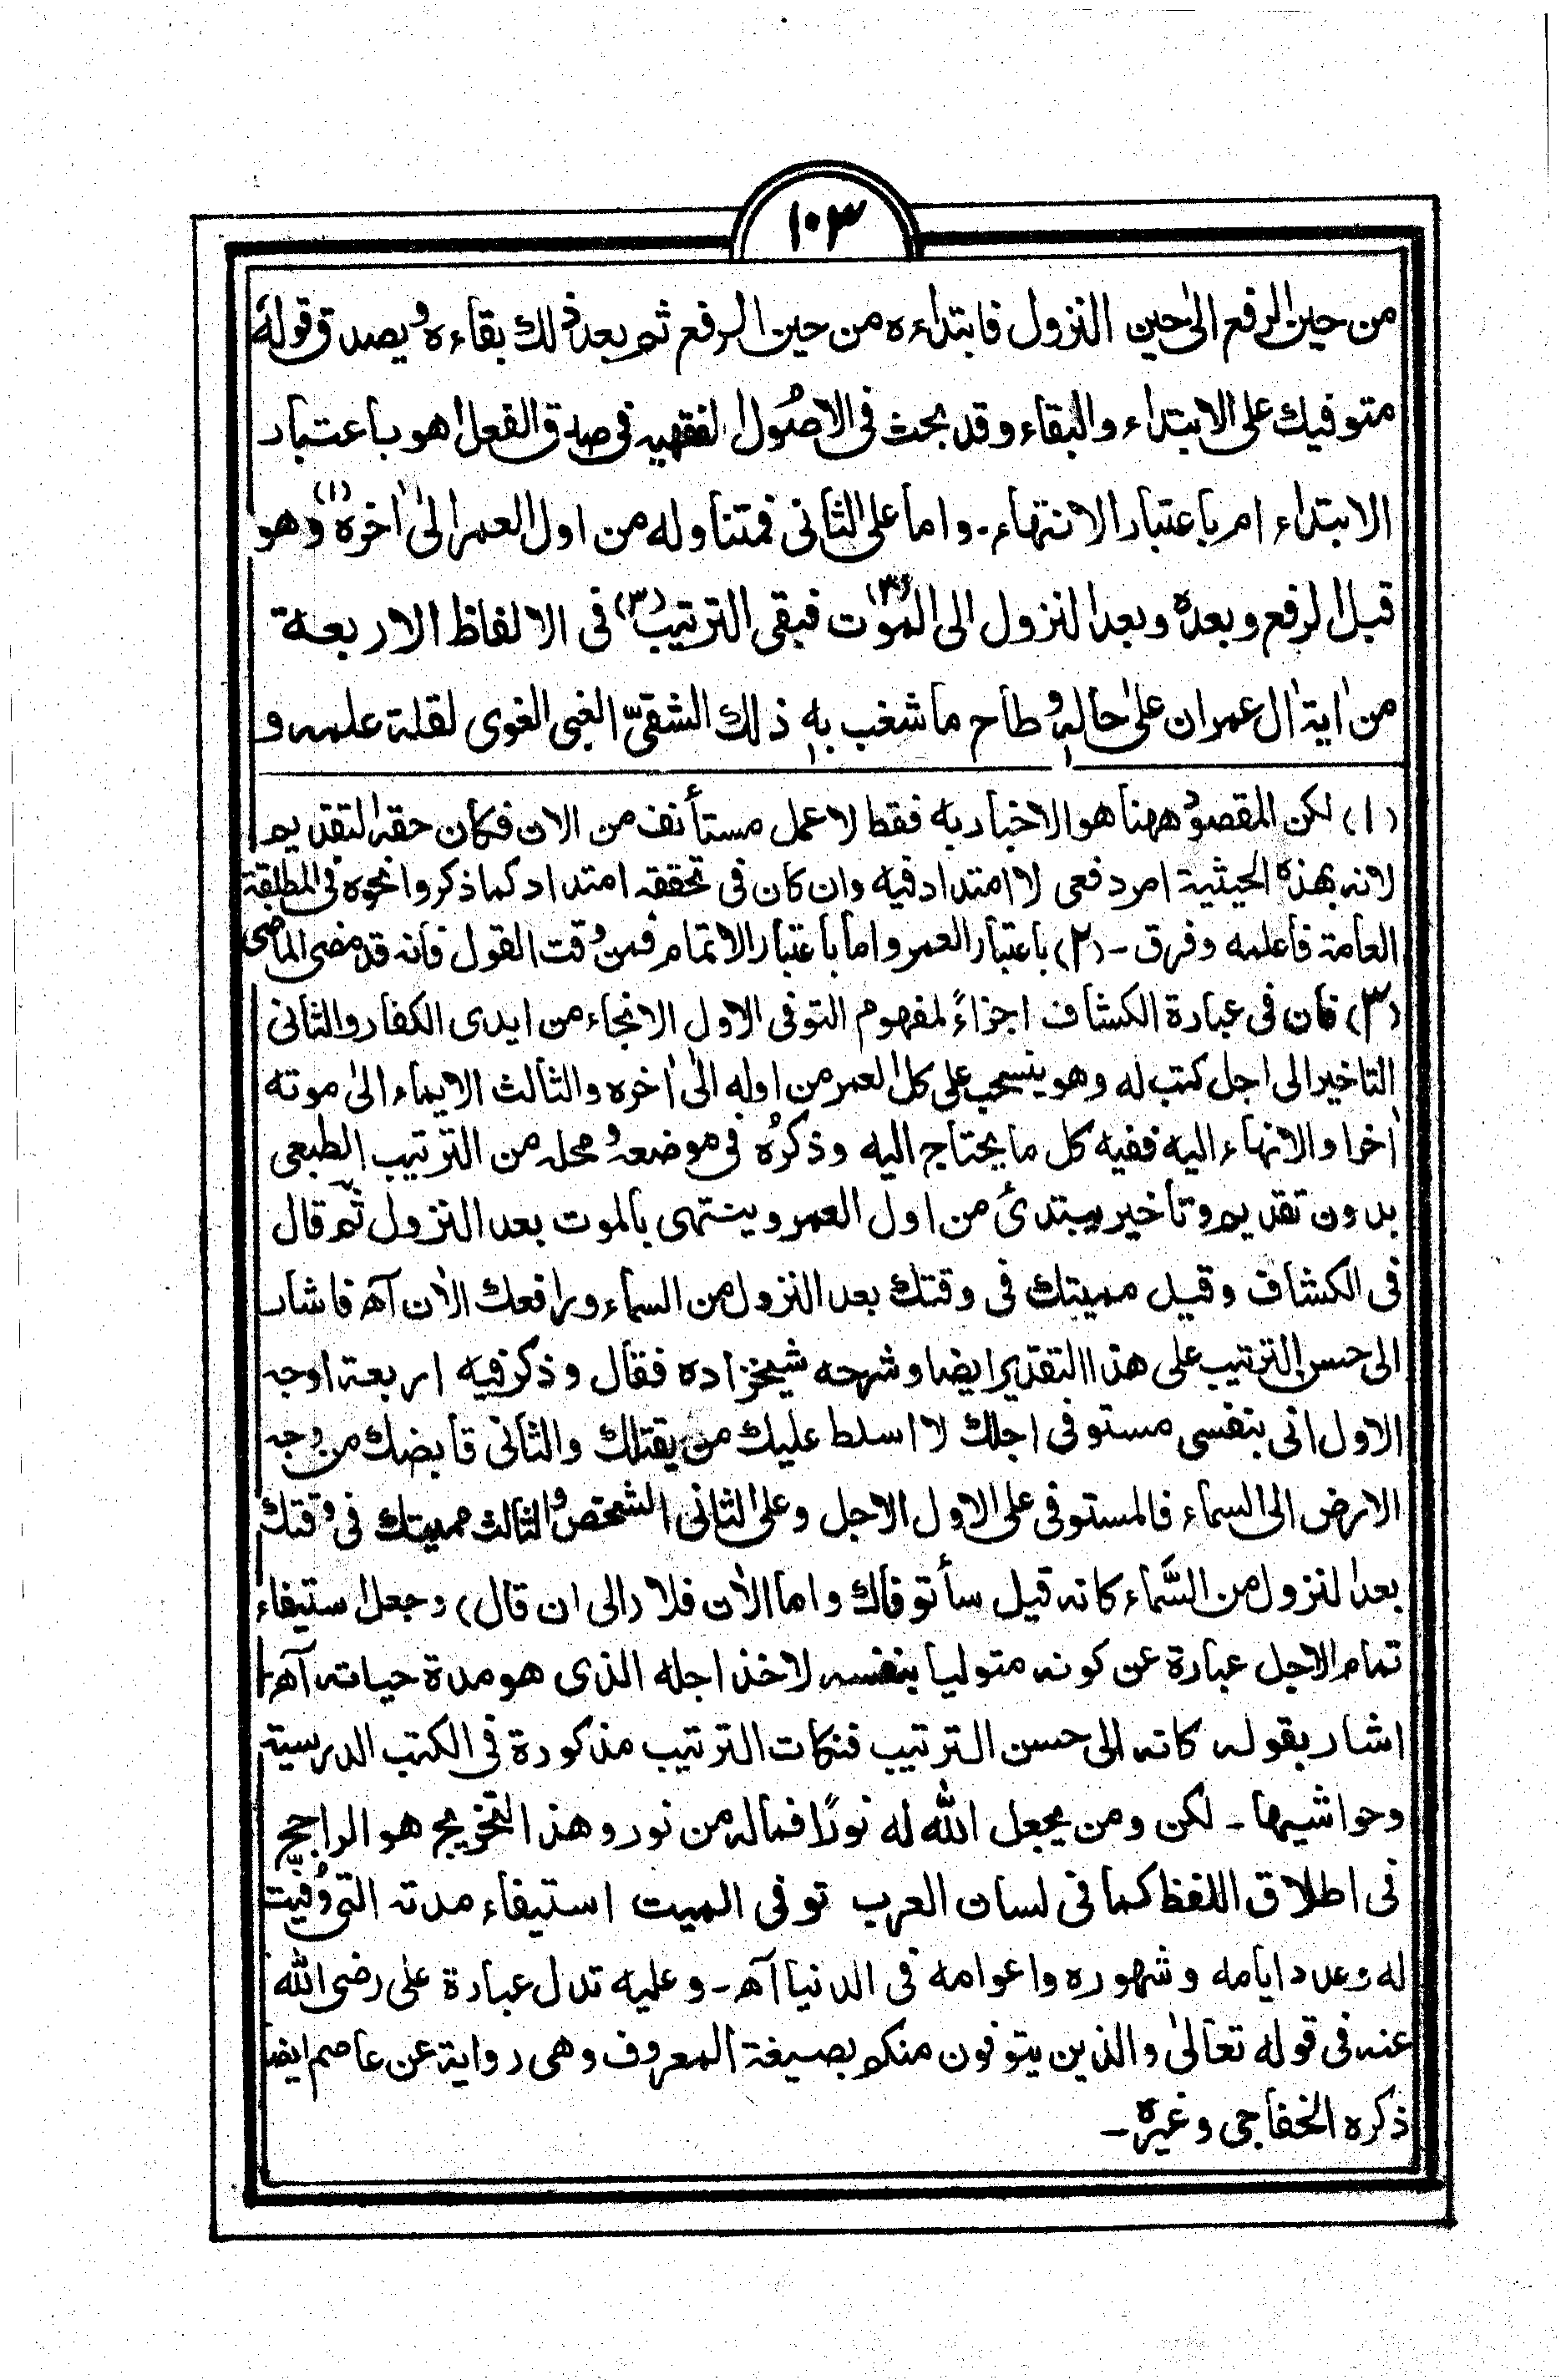 ١٠٣
من حين الرفع الىٰ حين النزول فابتداءه من حين الرفع ثم بعد ذلك بقاءه ويصدق قوله
متوفيك على الابتداء والبقاء وقد بحث فى الاصُول الفقهيه فى صدق الفعل اهو باعتبار
الابتداء ام باعتبار الانتهاء۔ واما على الثانى فمتناوله من اول العمر الىٰ اٰخره (١) وهو
قبل الرفع وبعده وبعد النزول الى الموت (٢) فبقى الترتيب (٣) فى الالفاظ الاربعة
من اٰية اٰل عمران علىٰ حاله وطاح ما شغب به ذلك الشقىّ الغبى الغوى لقلة علمه و
(١) لكن المقصود ههنا هو الاخبار به فقط لا عمل مستأنف من الان فكان حقه التقديم
لانه بهذه الحيثية امر دفعى لا امتداد فيه وان كان فى تحققه امتداد كما ذكروا نحوه فى المطلقة
العامة فاعلمه وفرق ۔ (٢) باعتبار العمر واما باعتبار الاتمام فمن وقت القول فانه قد مضى الماضى
(٣) فان فى عبارة الكشاف اجزاءً لمفهوم التوفى الاول الانجاء من ايدى الكفار والثانى
التاخير الى اجل كتب له وهو ينسحب على كل العمر من اوله الىٰ اٰخره والثالث الايماء الىٰ موته
اٰخرا والانهاء اليه ففيه كل ما يحتاج اليه وذكرُه فى موضعه ومحله من الترتيب الطبعى
بدون تقديم وتاخير يبتدئ من اول العمر وينتهى بالموت بعد النزول ثم قال
فى الكشاف وقيل مميتك فى وقتك بعد النزول من السماء ورافعك الاٰن آھ فاشار
الى حسن الترتيب على هذا التقدير ايضا وشرحه شيخزاده فقال وذكر فيه اربعة اوجه
الاول انى بنفسى مستوفى اجلك لا اسلط عليك من يقتلك والثانى قابضك من وجه
الارض الى السماء فالمستوفى على الاول الاجل وعلى الثانى الشخص والثالث مميتك فى وقتك
بعد النزول من السَّماء كانه قيل سأتوفاك واما الاٰن فلا (الى ان قال) وجعل استيفاء
تمام الاجل عبارة عن كونه متوليا بنفسه لاخذ اجله الذى هو مدة حياته آھ
اشار بقوله كانه الى حسن الترتيب فنكات الترتيب مذكورة فى الكتب الدرسية
وحواشيها ۔ لكن ومن يجعل الله له نورًا فماله من نور وهذا التخريج هو الراجح
فى اطلاق اللفظ كما فى لسان العرب توفى الميت استيفاء مدته التى وُفيت
له وعدد ايامه وشهوره واعوامه فى الدنيا آھ۔ وعليه تدل عبارة على رضى الله
عنه فى قوله تعالىٰ والذين يتوفون منكم بصيغة المعروف وهى رواية عن عاصم ايضا
ذكره الخفاجى وغيره ۔